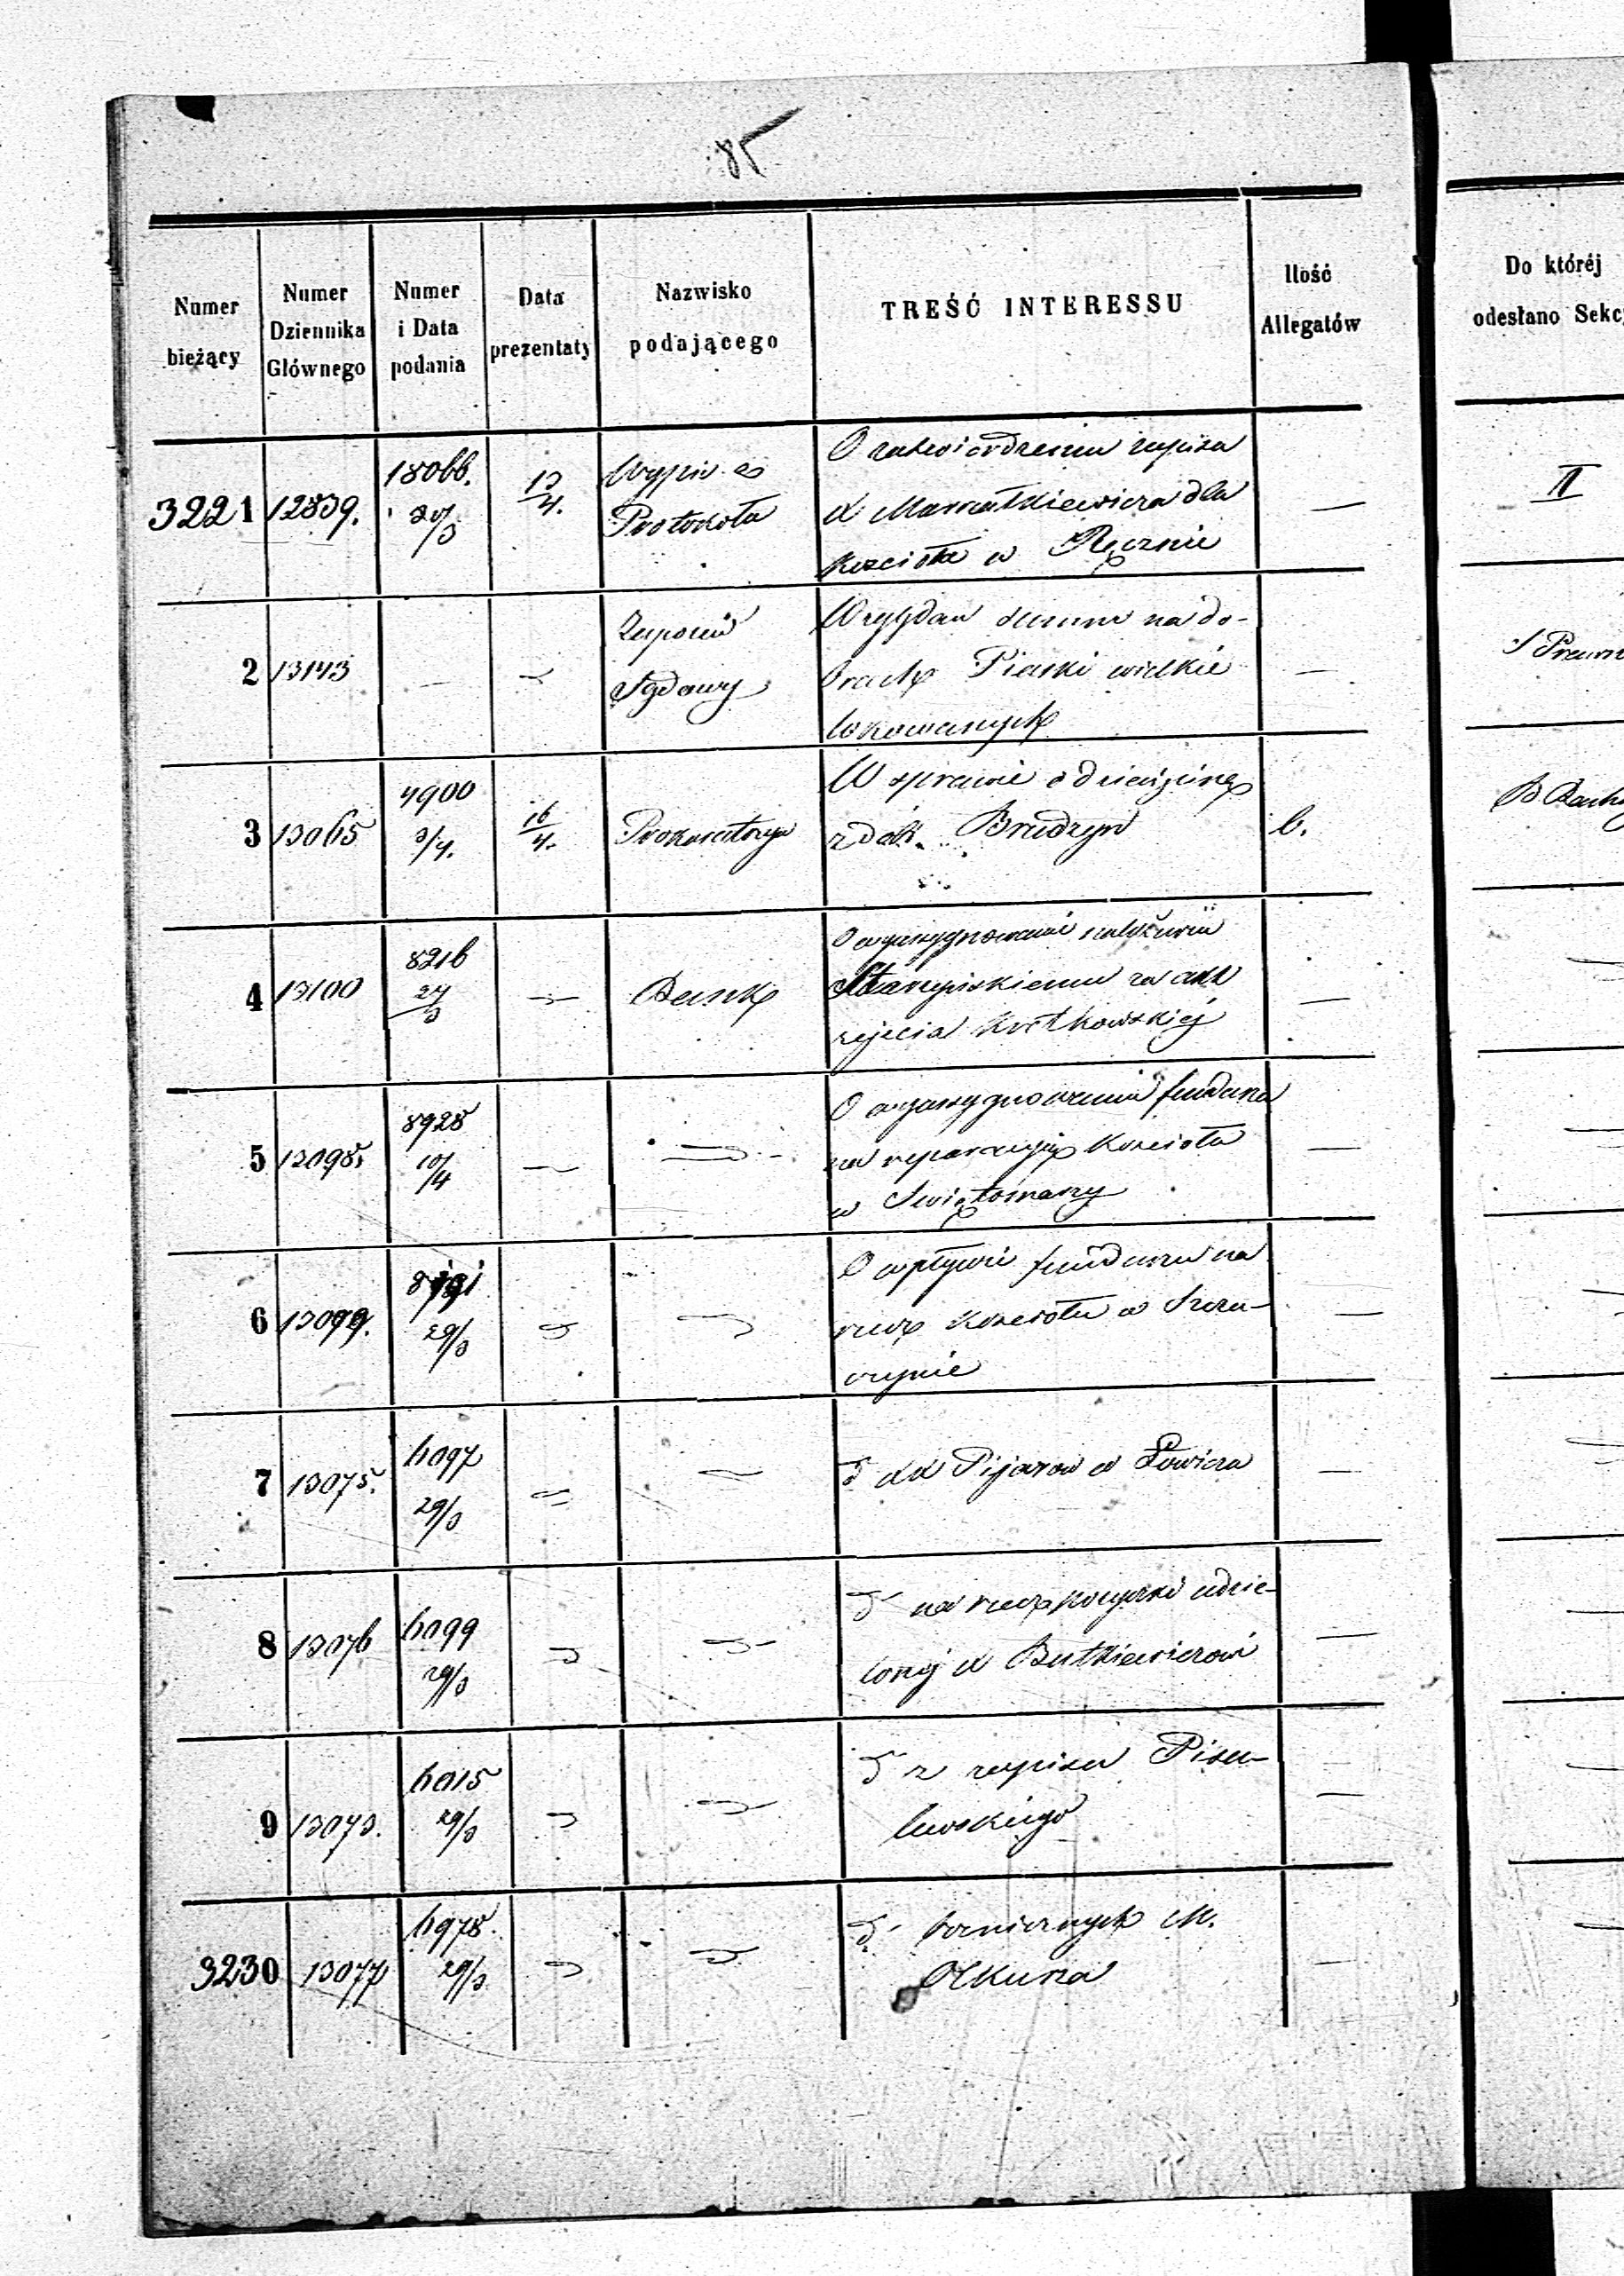 85
Numer bieżący
Numer Dziennika Głównego
Numer i Data podania
Data prezentaty
Nazwisko podającego
TREŚĆ INTERESSU
Ilość Allegatów
Do któréj
odesłano Sekc
3221 12839. 18066. 20/3 13/4. Wypis z Protokołu
O zatwierdzeniu zapisu
X Marcatkiewicza dla
kościoła w Ręcznie
—
II
2 13143 — Zapozew Sądowy
Względem summ na do-
brach Piaski wielkie
lokowanych
—
3 13065 4900 3/4. 16/4. Prokuratorya
W sprawie o dziesięcinę
z dóbr Brudzyń
6.
4 13100 8216 27/3 Bank
O wyasygnowanie należności
Skarupskiemu za akt
zejścia Kretkowskiéj
—
5 13098. 8928 10/4
O wyasygnowanie
na reparacyę Kościoła
w Świętomarzy
—
6 13099. 29/3
O wpływie funduszu na
rzecz Kościoła w
—
7 13075. 6097 29/3
d XX Pijarów w Łowiczu
—
8 13076 6099 29/3
d na rzecz pożyczki udzie-
lonéj X Butkiewiczowi
—
9 13073. 6015 29/3
d z zapisu Pisu-
lewskiego
—
3230 13077 6978. 29/3
d M.
Olkusza
—